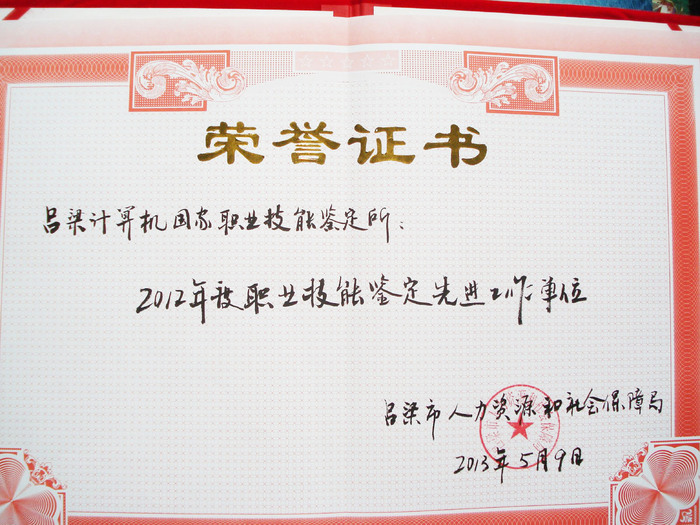 荣誉证书
吕梁计算机国家职业技能鉴定所：
2012年度职业技能鉴定先进工作单位
吕梁市人力资源和社会保障局
2013年5月9日